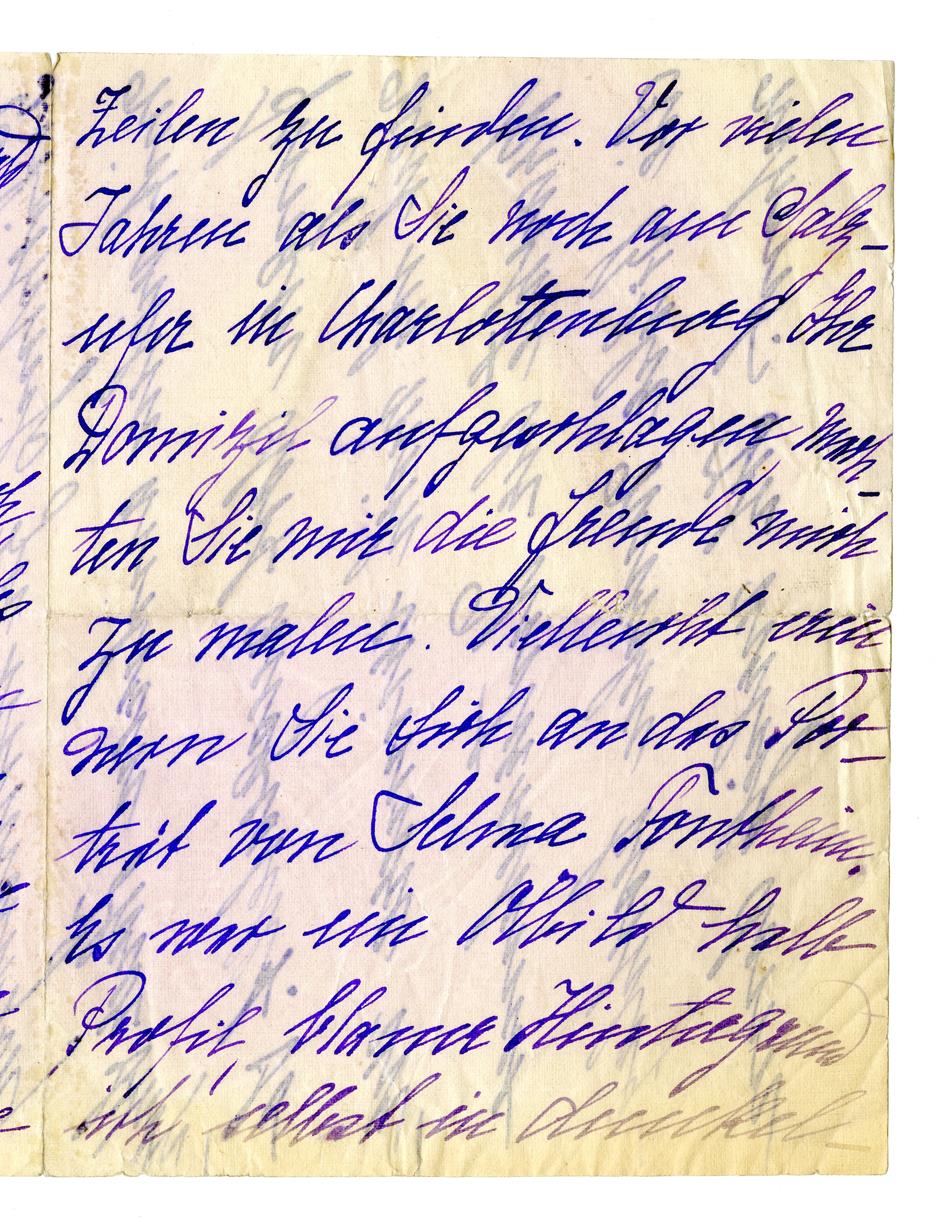 Zeilen zu finden. Vor vielen
Jahren als Sie noch am Salz-
ufer in Charlottenburg Ihr
Domizil aufgeschlagen, mach-
ten Sie mir die Freude mich
zu malen. Vielleicht erin
nern Sie sich an das Por-
trät von Selma Fontheim.
Es war ein Ölbild halb
Profil, blauer Hintergrund
ich selbst in dunkel-